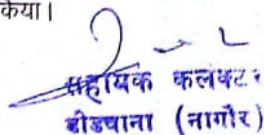 किया।
सहायक कलक्टर
डीडवाना (नागौर)